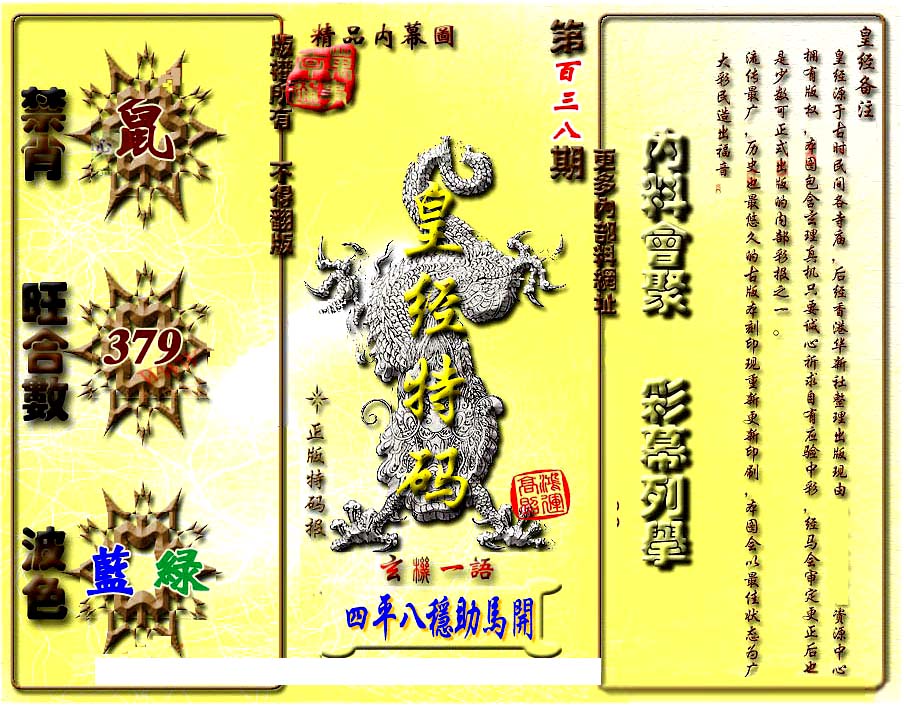 精品内幕圖
版權所有 不得翻版
禁肖
鼠
旺合數
379
波色
藍 綠
皇经特码
正版特码报
鴻運高照
玄機一語
四平八穩助馬開
第百三八期
更多内部料網址
内料會聚
彩幕列舉
皇经备注
皇经源于古时民间各寺庙，后经香港华新社整理出版现由 资源中心
拥有版权，本图包含玄理真机只要诚心祈求自有应验中彩，经马会审定更正后也
是少数可正式出版的内部彩报之一。
流传最广，历史也最悠久的古版本刻印现重新更新印刷，本图会以最佳状态为广
大彩民造出福音